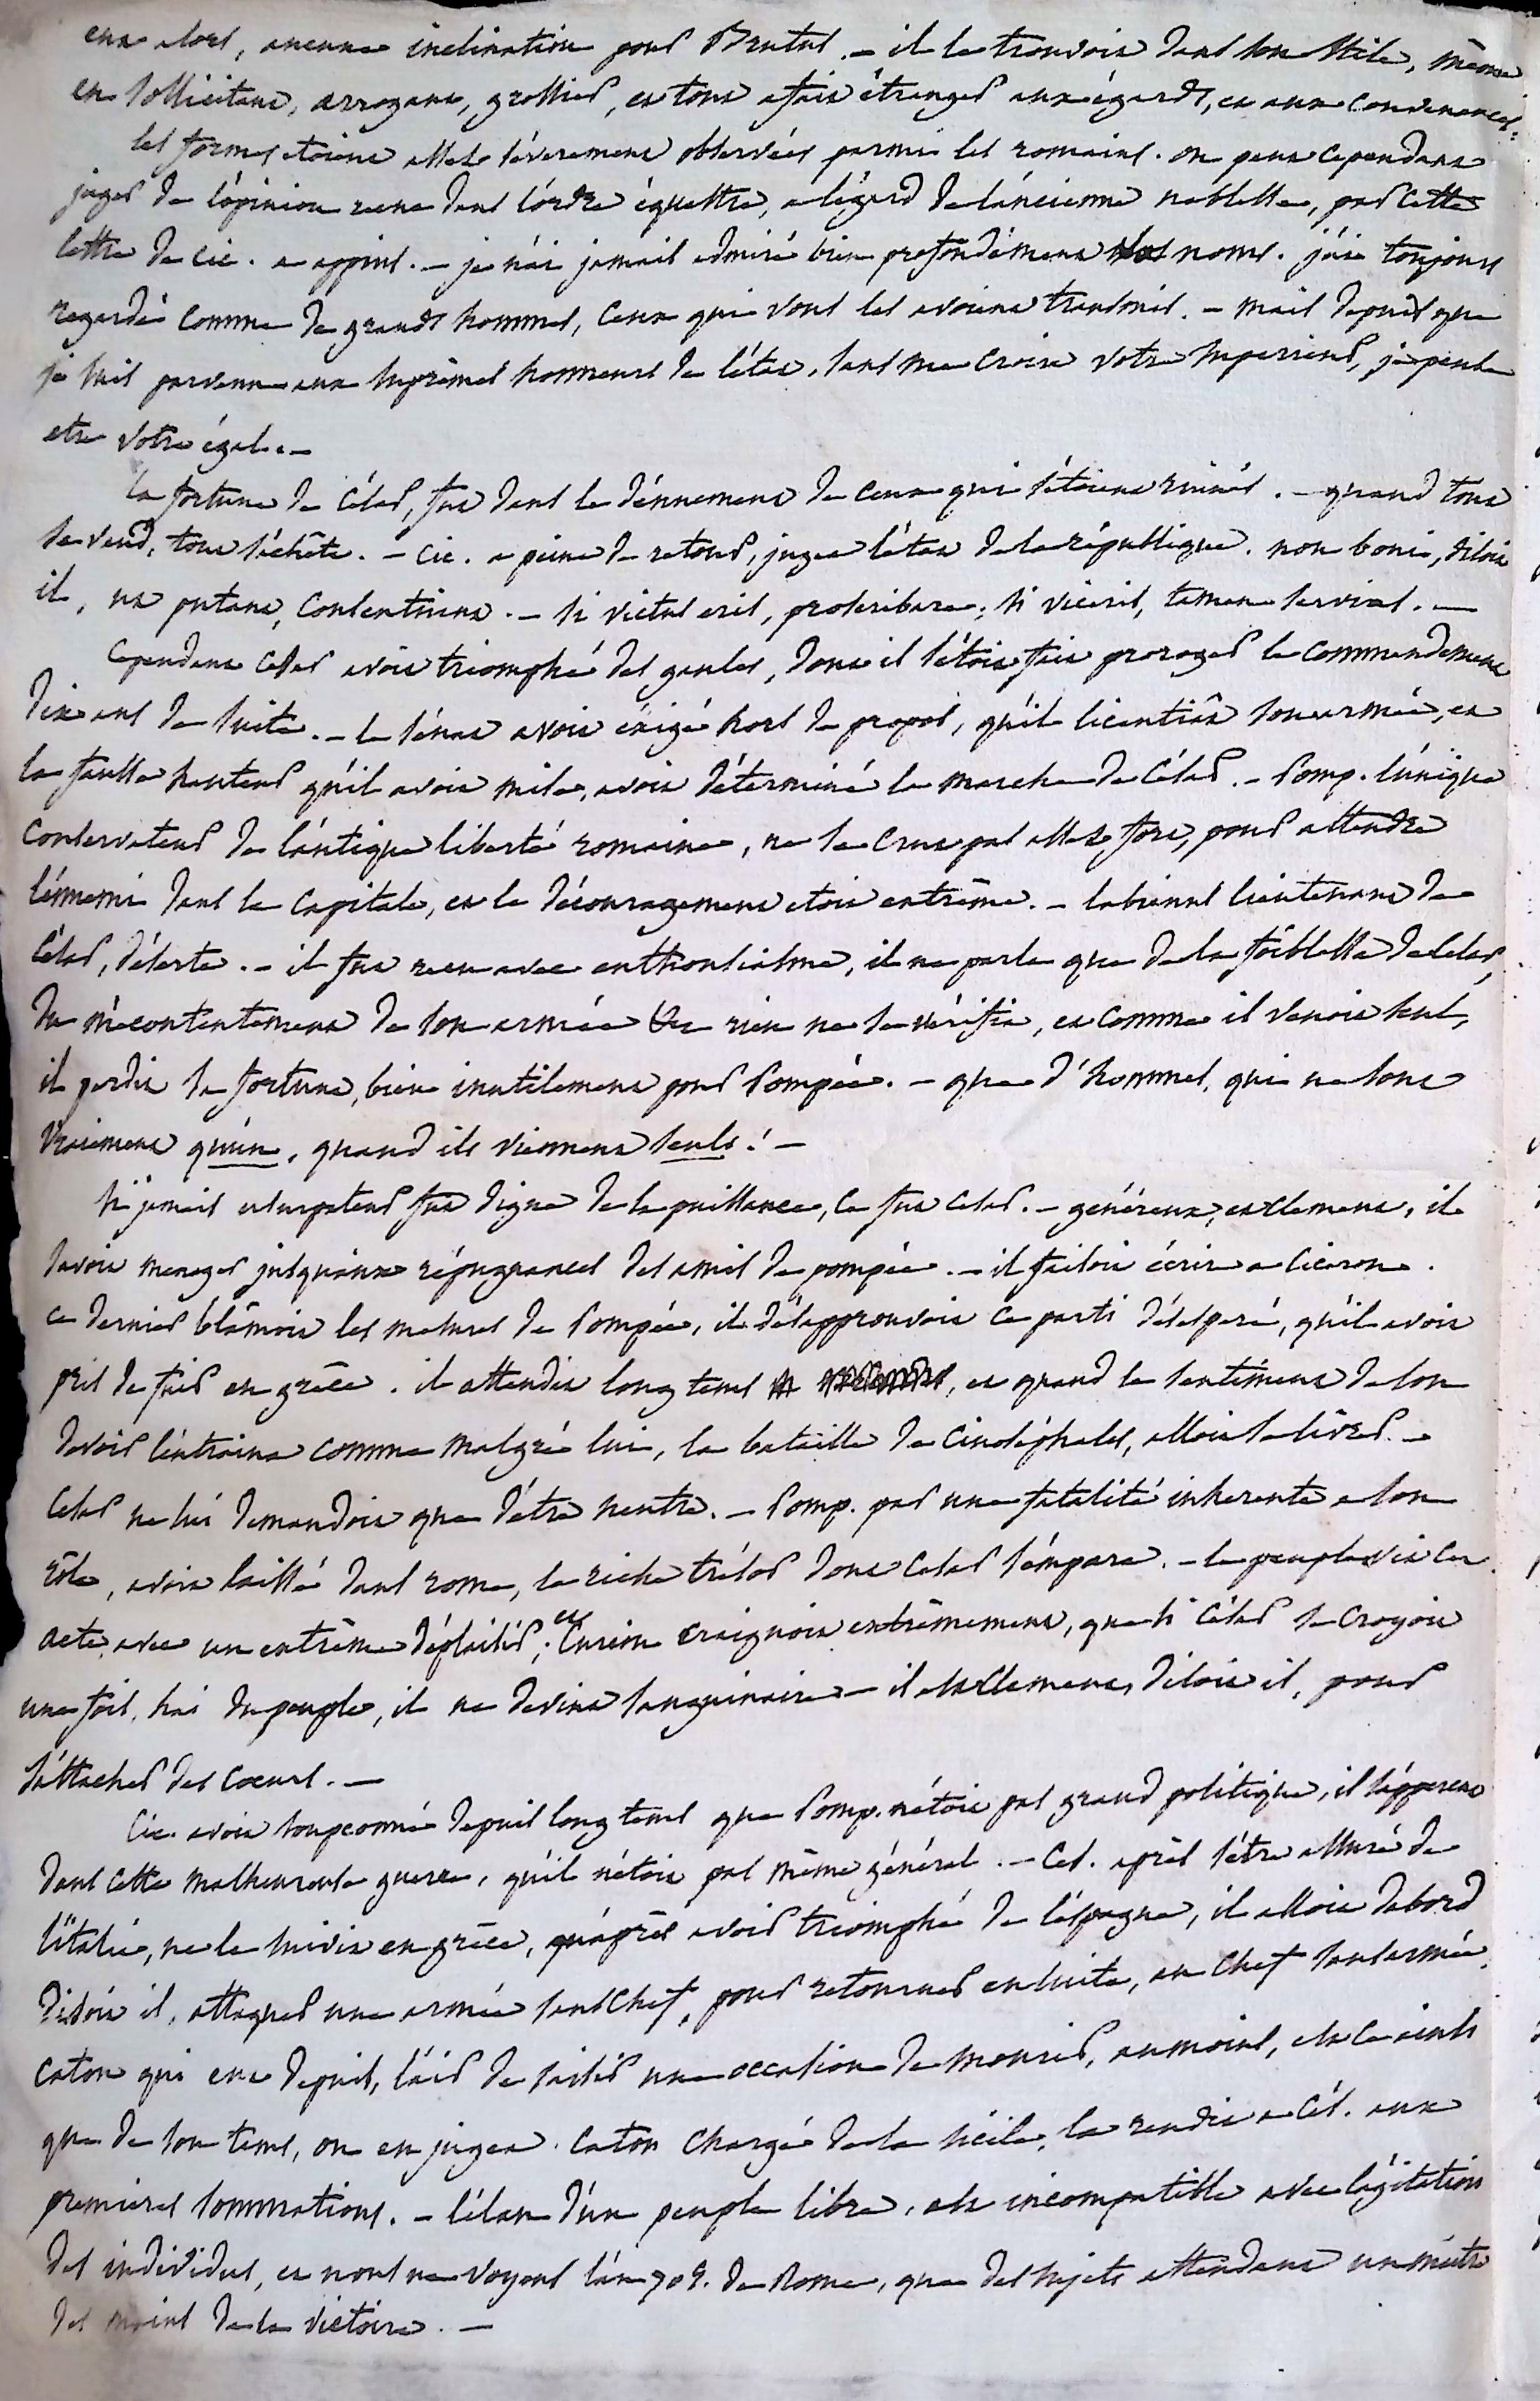 eut alors, aucune inclination pour Brutus. – il le trouvoit dans son stile, même
en sollicitant, arrogant, grossier, et tout a fait étranger aux égards, et aux convenances.
les formes etoient assez séverement observées parmi les romains. on peut cependant
juger de l'opinion reçue dans l'órdre équestre, a légard de láncienne noblesse, par cette
lettre de cic. a appius. – je n'ai jamais admiré bien profondément vos noms. j'ai toujours
regardé comme de grands hommes, ceux qui vous les avoient transmis. – mais depuis que
je suis parvenu aux suprêmes honneurs de l'état, sans me croire votre superieur, je pense
etre votre égal. –
la fortune de César, fut dans le dénuement de ceux qui s'étoient ruinés. – quand tout
se vend, tout s'achête. – cic. a peine de retour, jugea l'état de la république. non boni, disoit
il, ut putant, consentiunt. – si victus erit, proscribare; si vicerit, tamen servias. –
cependant César avoit triomphé des gaules, dont il s'étoit fait proroger le commandement
dix ans de suite. – le sénat avoit éxigé hors de propos, qu'il licentiât son armée, et
la fausse hauteur qu'il avoit mise, avoit déterminé la marche de César. – Pomp. l'únique
conservateur de l'antique liberté romaine, ne se crut pas assez fort, pour attendre
l'énnemi dans la capitale, et le découragement etoit extrême. – labienus lieutenant de
César, déserta. – il fut reçu avec enthousiasme, il ne parla que de la foiblesse de César,
du mécontentement de son armée &c rien ne se vérifia, et comme il venoit seul,
il perdit sa fortune, bien inutilement pour Pompée. – que d'hommes, qui ne sont
vraiment qu'un, quand ils viennent seuls! –
si jamais usurpateur fut digne de la puissance, ce fut César. – généreux, et clement, il
savoit menager jusqu'aux répugnances des amis de pompée. – il faisoit écrire a ciceron.
ce dernier blâmoit les mesures de Pompée, il désapprouvoit ce parti désesperé, qu'il avoit
pris de fuir en grêce. il attendit long tems, et quand le sentiment de son
devoir l'éntraina comme malgré lui, la bataille de cinocéphales, alloit se livrer. –
César ne lui demandoit que d'être neutre. – Pomp. par une fatalité inherente a son
rôle, avoit laissé dans rome, le riche trésor dont César s'émpara. – le peuple vit cet
acte, avec un extrême déplaisir; et Curion craignoit extrêmement, que si César se croyoit
une fois, haï du peuple, il ne devint sanguinaire – il est clement, disoit il, pour
s'attacher des coeurs. –
Cic. avoit soupconné depuis long tems que Pomp. n'étoit pas grand politique, il s'apperçut
dans cette malheureuse guerre, qu'il n'étoit pas même général. – Ces. après s'être assuré de
l'italie, ne le suivit en grêce, qu'áprês avoir triomphé de l'éspagne, il alloit dabord
disoit il, attaquer une armée sans chef, pour retourner ensuite, au chef sans armée.
caton qui eut depuis, l'air de saisir une occasion de mourir, au moins, est ce ainsi
que de son tems, on en jugea. Caton chargé de la sicile, la rendit a Cés. aux
premieres sommations. – l'élan d'un peuple libre, est incompatible avec l'agitation
des individus, et nous ne voyons l'án 705. de Rome, que des sujets attendant un maitre
des mains de la victoire. –